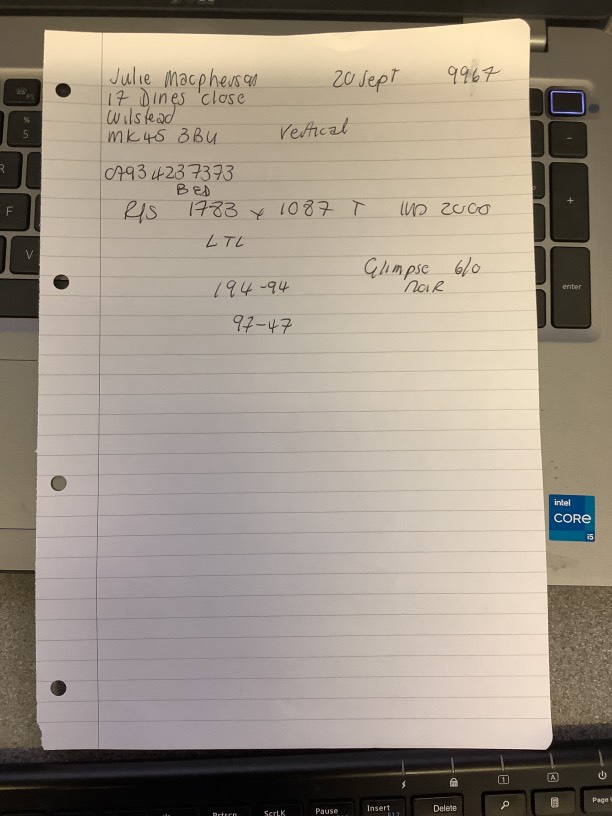 Julie Macpherson 20 Sept 9967
17 Dines close
Wilstead
MK45 3BU Vertical
07934237373
BED
R/S 1783 x 1087 T IND 2000
LTL
Glimpse b/o
noiR
194-94
97-47
%
5
R
F
V
-
+
enter
intel
CORE
i5
PrtScn
ScrLK
Pause
Insert
Delete
F12
1
A
Page